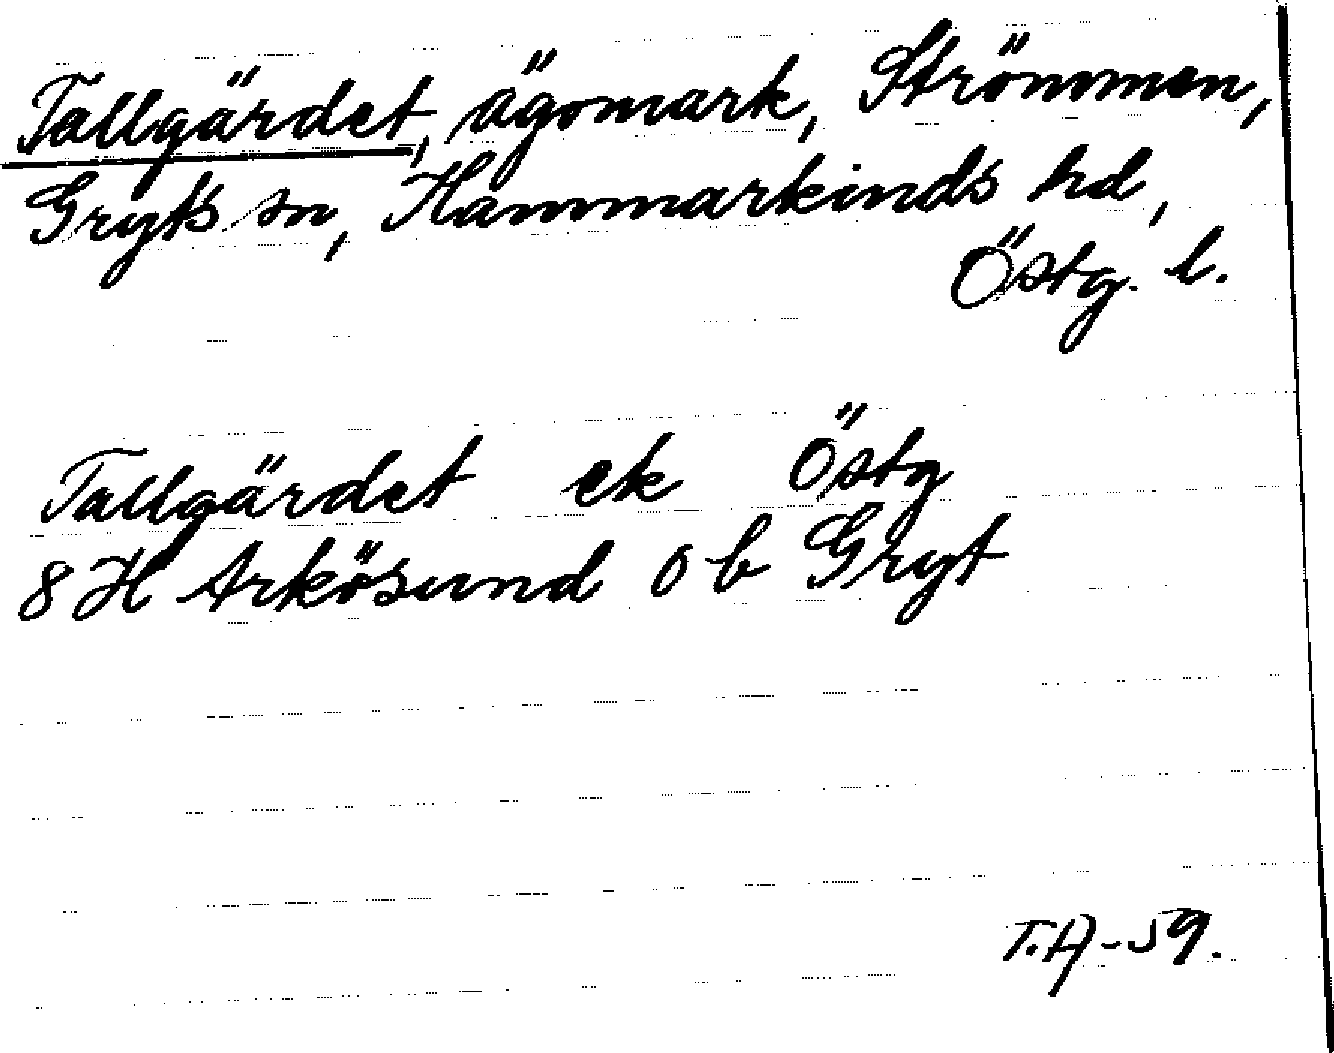 Tallgärdet, ägomark, Strömmen,
Gryts sn, Hammarkinds hd,
Östg. l.
Tallgärdet ek Östg
8 H Arkösund o b Gryt
T.H-59.